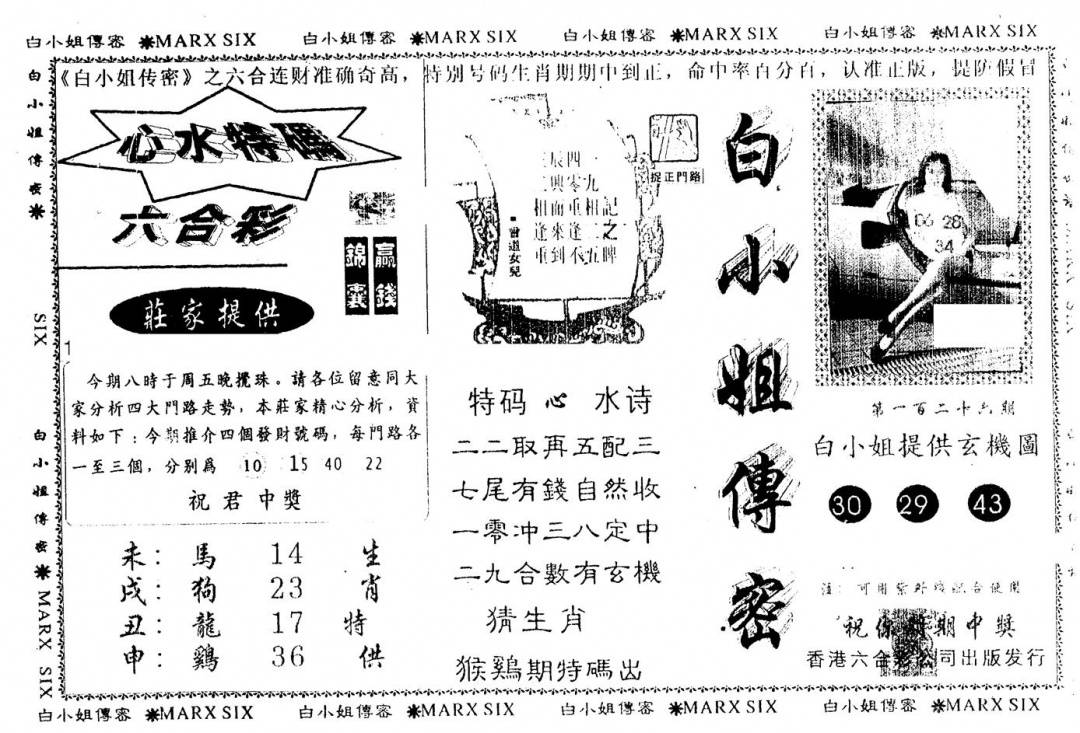 白小姐傳密 ✷MARX SIX 白小姐傳密 ✷MARX SIX 白小姐傳密 ✷MARX SIX 白小姐傳密 ✷MARX SIX
《白小姐传密》之六合连财准确奇高，特别号码生肖期期中到正，命中率百分百，认准正版，提防假冒
白小姐傳密 ✷
SIX
白小姐傳密 ✷ MARX SIX
心水特碼
六合彩
錦囊
贏錢
莊家提供
1
今期八時于周五晚攪珠。請各位留意同大
家分析四大門路走勢，本莊家精心分析，資
料如下：今期推介四個發財號碼，每門路各
一至三個，分别爲 10 15 40 22
祝君中獎
未：馬 14 生
戌：狗 23 肖
丑：龍 17 特
申：鷄 36 供
捉正門路
辰四一
興零九
相而重相記
逢來逢二之
重到不五牌
▪曾道女兒
特码心水诗
二二取再五配三
七尾有錢自然收
一零冲三八定中
二九合數有玄機
猜生肖
猴鷄期特碼出
白小姐傳密
06 28
34
第一百二十九期
白小姐提供玄機圖
30 29 43
注：可用紫外綫配合使用
祝你期中獎
香港六合彩公司出版发行
白小姐傳密 ✷MARX SIX 白小姐傳密 ✷MARX SIX 白小姐傳密 ✷MARX SIX 白小姐傳密 ✷MARX SIX